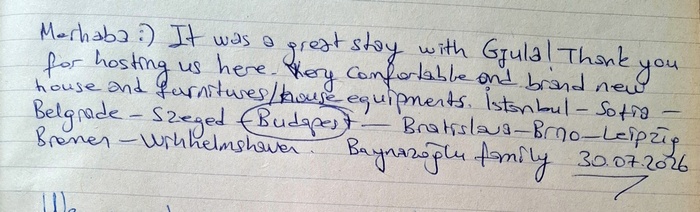 Merhaba :) It was a great stay with Gjula! Thank you
for hosting us here. Very comfortable and brand new
house and furnitures/house equipments. İstanbul – Sofia –
Belgrade – Szeged – Budapest – Bratislava – Brno – Leipzig
Bremen – Wilhelmshaven. Baynazoğlu family 30.07.2026